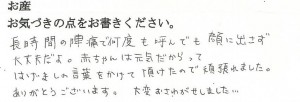 お産
お気づきの点をお書きください。
長時間の陣痛で何度も呼んでも顔に出さず
大丈夫だよ。赤ちゃんは元気だからって
はげましの言葉をかけて頂けたので頑張れました。
ありがとうございます。大変おさわがせしました…